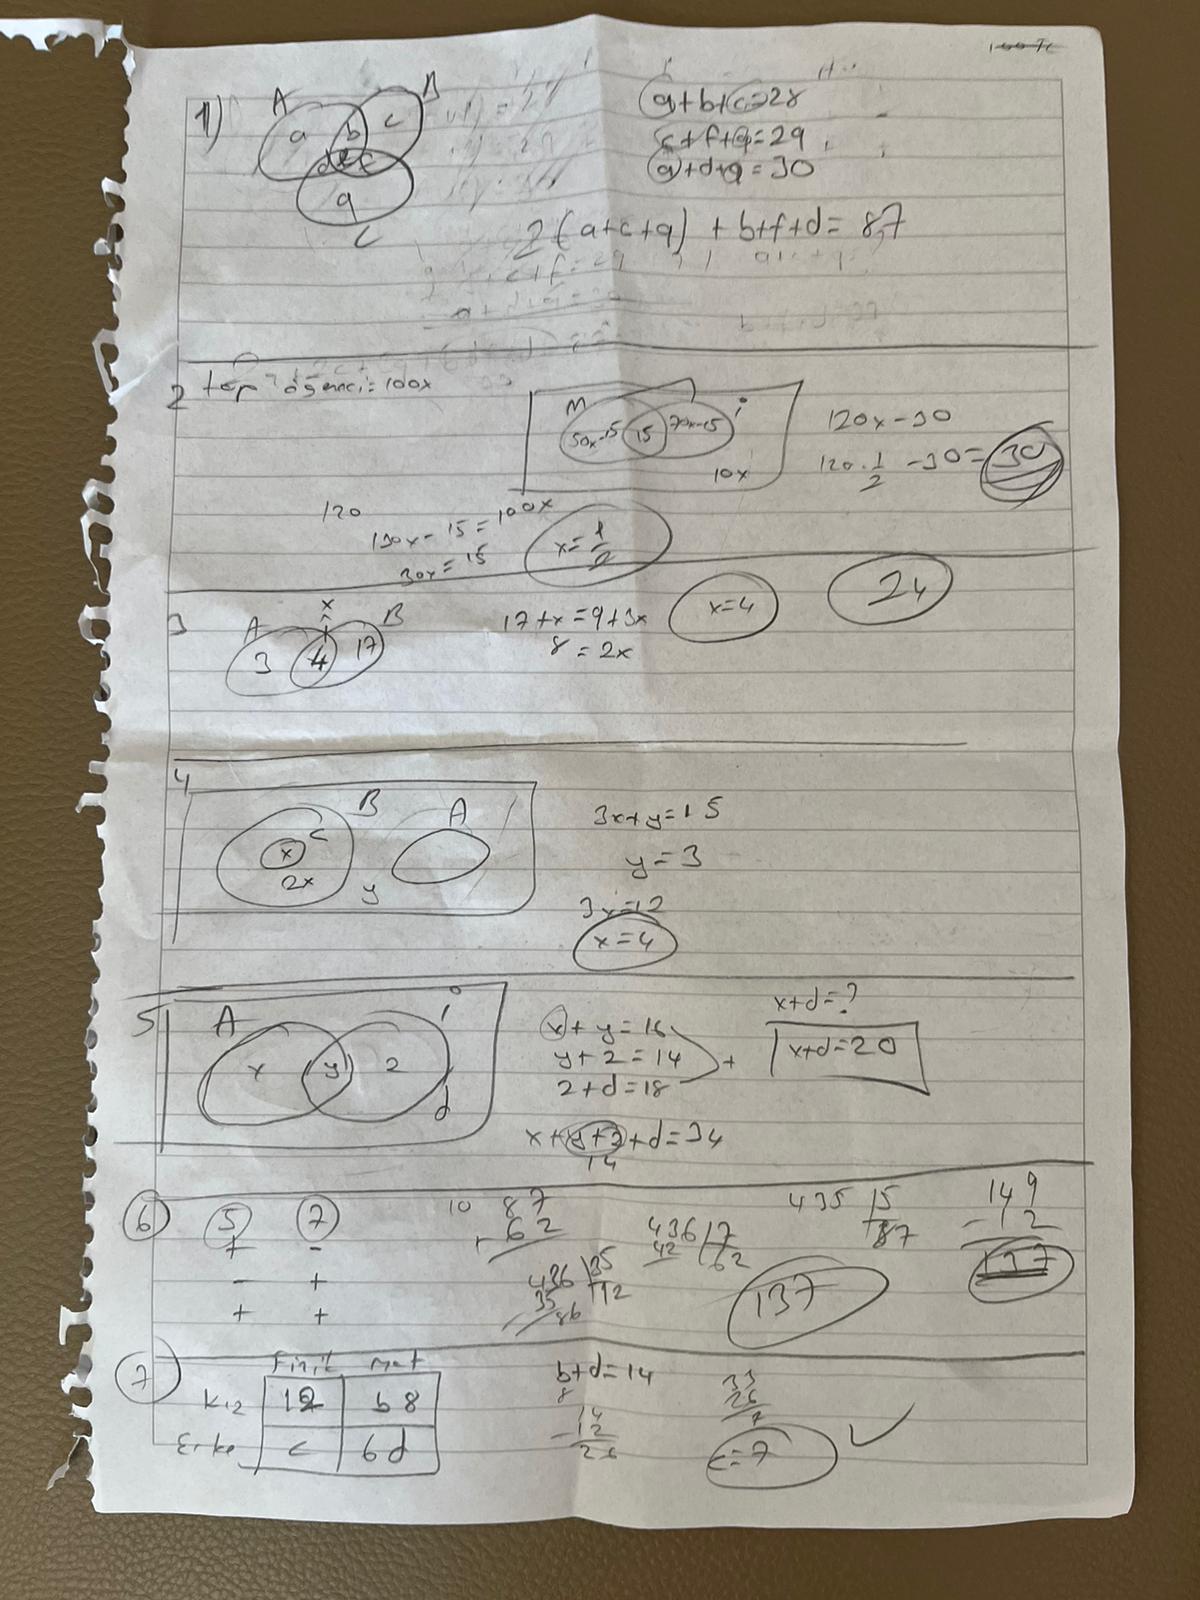 1) A B
a b c
d e f
g
C
a+b+c=28
c+f+g=29
a+d+g=30
2(a+c+g) + b+f+d= 87
2 top öğrenci=100x
M i
50x-15 15 70x-15
10x
120x-30
120.1/2 -30=30
120
130x-15=100x
30x=15
x=1/2
3 A x B
3 4 17
17+x=9+3x
8=2x
x=4
24
4
B A
x C
2x y
3x+y=15
y=3
3x=12
x=4
5 A i
x y 2
d
x+y=16
y+2=14
2+d=18
+
x+y+2+d=34
14
x+d=?
x+d=20
6 5 7
+ -
- +
+ +
10 87
+ 62
436 35
35 12
86
436 7
42 62
435 5
87
149
- 12
137
137
7
Fizik mat
Kız 12 b 8
Erke c 6 d
b+d=14
8
33
26
7
c=7